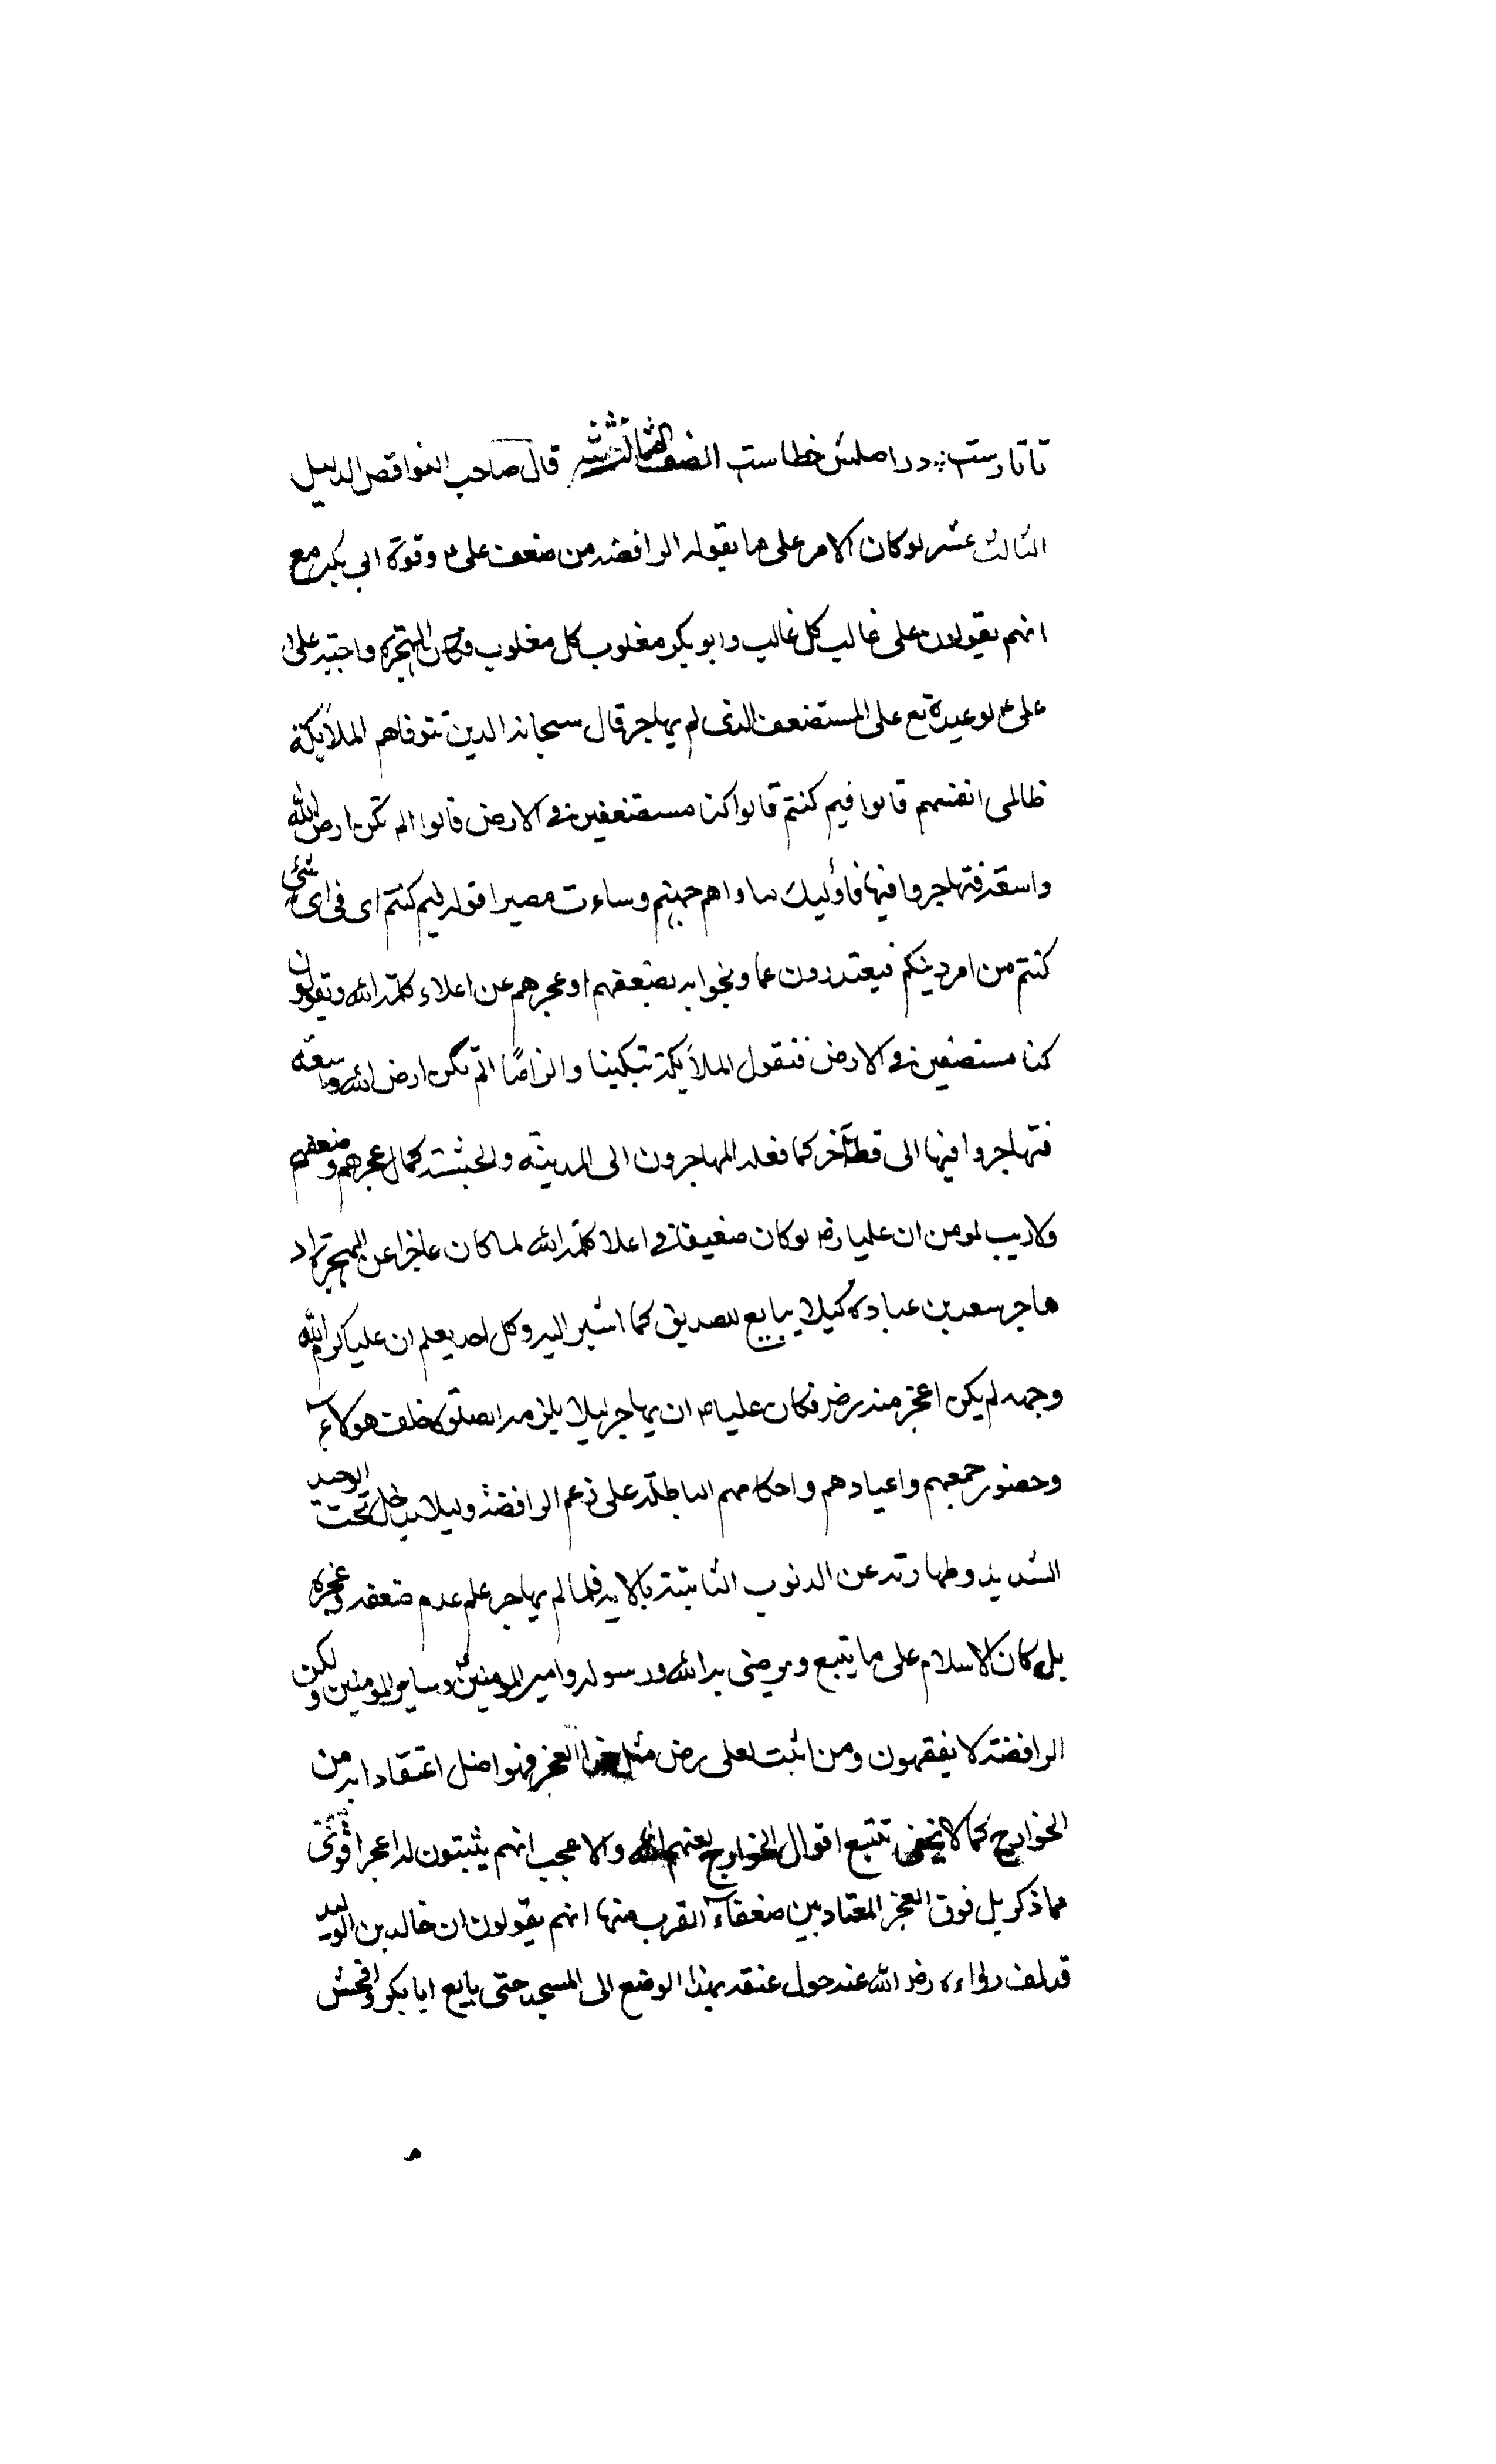 تا تارست در اصلش خطاست الصف الثالث عشر قال صاحب النواقض الدليل
الثالث عشر لو كان الامر على ما يقوله الرافضه من ضعف على ع وقوة ابى بكر مع
انهم يقولون على غالب كل غالب وابو بكر مغلوب كل مغلوب فكان الهجره واجبة على
على ع لوعيده تع على المستضعف الذى لم يهاجر قال سبحانه الذين تتوفاهم الملائكة
ظالمى انفسهم قالوا فيم كنتم قالوا كنا مستضعفين فى الارض قالوا الم تكن ارض الله
واسعة فتهاجروا فيها فأوليك ماواهم جهنم وساءت مصيرا قوله فيم كنتم اى فى اى شئ
كنتم من امر دينكم فيعتذرون عما وبخوا به بضعفهم او عجزهم عن اعلاء كلمة الله ويقولون
كنا مستضعفين فى الارض فتقول الملائكة تبكيتا والزامًا الم تكن ارض الله واسعة
فتهاجروا فيها الى قطر آخر كما فعله المهاجرون الى المدينة والحبشة كمال عجزهم وضعفهم
ولا ريب لمومن ان عليا رض لو كان ضعيفا فى اعلا كلمة الله لما كان عاجزا عن الهجرة اذ
هاجر سعد بن عباده كيلا يبايع للصديق كما اشير اليه وكل احد يعلم ان عليا كرم الله
وجهه لم يكن اعجز منه رض فكان عليه ان يهاجر ليلا يلزمه الصلوة خلف هولاء
وحضور جمعهم واعيادهم واحكامهم الباطلة على زعم الرافضة وليلا يدخل تحت الوعيد
الشديد وطهارته عن الذنوب الثابتة بالايه فلما لم يهاجر علم عدم ضعفه وعجزه
بل كان الاسلام على ما يتبع ويرضى به الله ورسوله وامير المومنين وساير المومنين ولكن
الرافضة لا يفقهون ومن اثبت لعلى رض مثل هذا العجز فهو اضل اعتقادا به من
الخوارج كما لا يخفى تتبع اقوال الخوارج لعنهم الله والاعجب انهم يثبتون له اعجز اقوى
مما ذكر بل فوق العجز المعتاد بين ضعفاء العرب منها انهم يقولون ان خالد بن الوليد
قد لف رداءه رض الله عنه حول عنقه بهذا الوضع الى المسجد حتى بايع ابا بكر وافحش